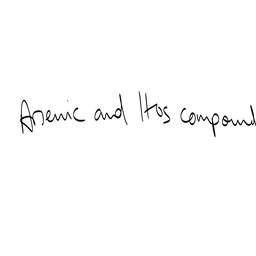 Arsenic and Its compound